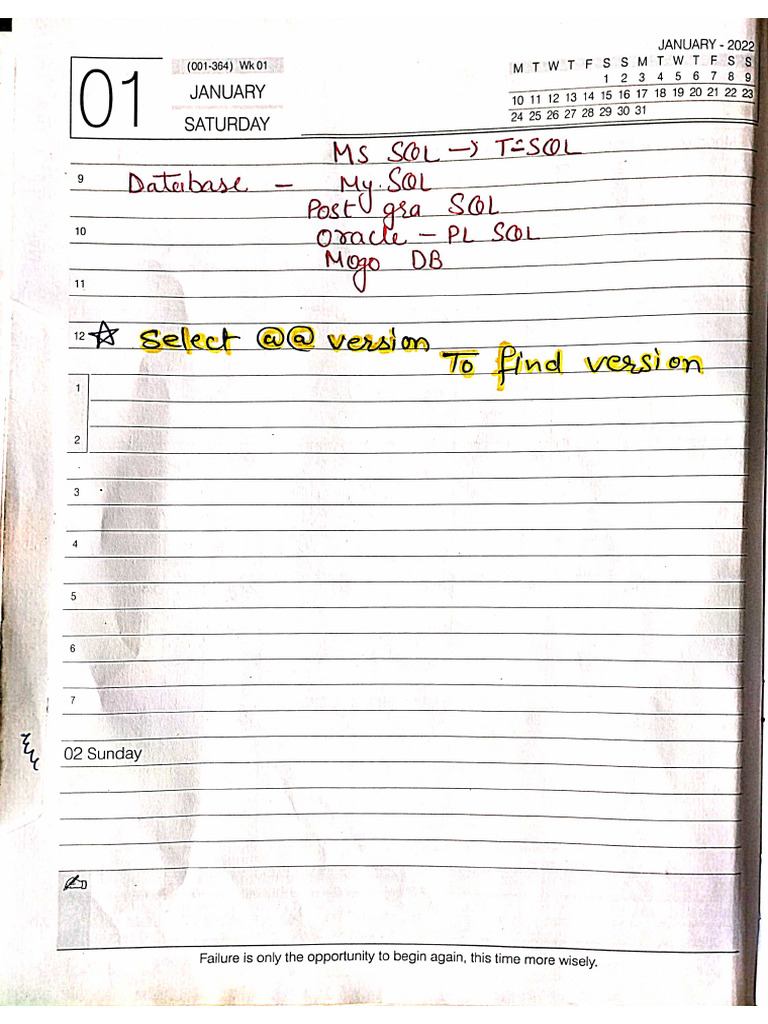 JANUARY - 2022
(001-364) Wk 01
M T W T F S S M T W T F S S
01
1 2 3 4 5 6 7 8 9
JANUARY
10 11 12 13 14 15 16 17 18 19 20 21 22 23
SATURDAY
24 25 26 27 28 29 30 31
MS SQL → T=SQL
9 Database - My SQL
Post gra SQL
10 Oracle - PL SQL
Mogo DB
11
12 ☆ Select @@ version
To find version
1
2
3
4
5
6
7
02 Sunday
Failure is only the opportunity to begin again, this time more wisely.